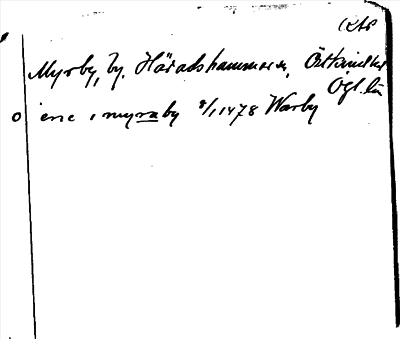 Myrby, by. Häradshammar, Östkinds hd
Ögl. län
eric i myraby 8/1 1478 Warby